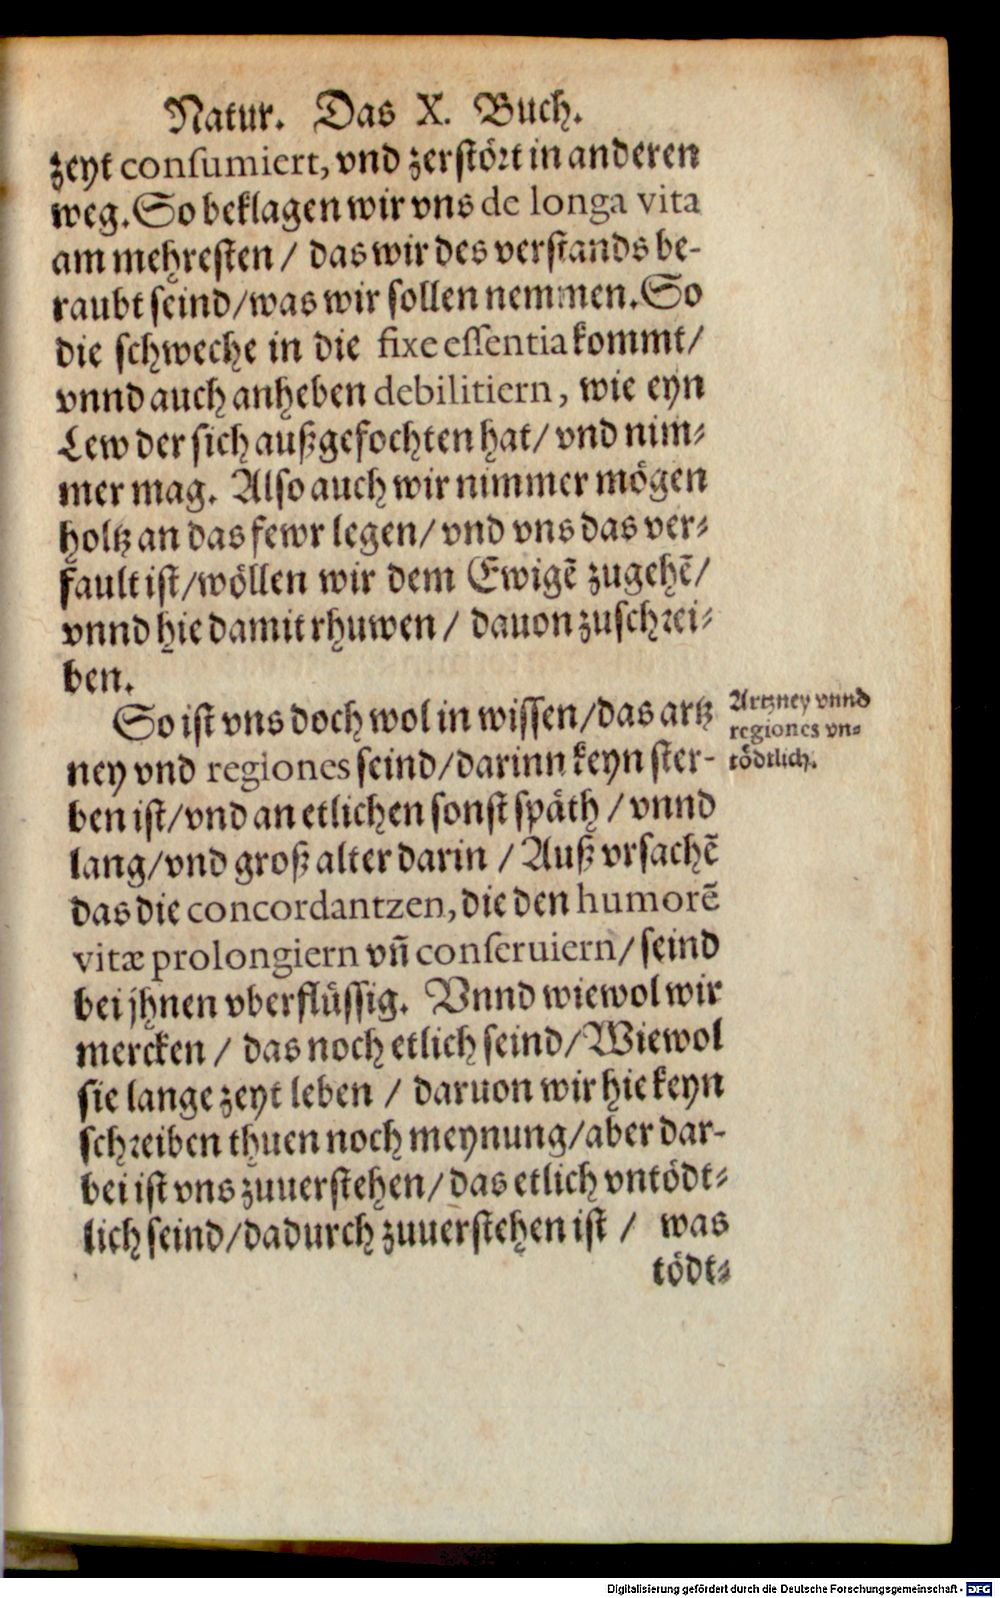 Natur. Das X. Buch.
zeyt consumiert, vnd zerstört in anderen
weg. So beklagen wir vns de longa vita
am mehresten / das wir des verstands be-
raubt seind/was wir sollen nemmen. So
die schweche in die fixe essentia kommt/
vnnd auch anheben debilitiern, wie eyn
Lew der sich außgefochten hat/ vnd nim-
mer mag. Also auch wir nimmer mögen
holtz an das fewr legen/ vnd vns das ver-
fault ist/wöllen wir dem Ewigē zugehē/
vnnd hie damit rhuwen / dauon zuschrei-
ben.
So ist vns doch wol in wissen/das artz
ney vnd regiones seind/darinn keyn ster-
ben ist/vnd an etlichen sonst späth / vnnd
lang/vnd groß alter darin / Auß vrsachē
das die concordantzen, die den humorē
vitæ prolongiern vn̄ conseruiern/ seind
bei jhnen vberflüssig. Vnnd wiewol wir
mercken / das noch etlich seind/Wiewol
sie lange zeyt leben / daruon wir hie keyn
schreiben thuen noch meynung/aber dar-
bei ist vns zuuerstehen/das etlich vntödt-
lich seind/dadurch zuuerstehen ist / was
tödt-
Artzney vnnd
regiones vn-
tödtlich.
Digitalisierung gefördert durch die Deutsche Forschungsgemeinschaft - DFG